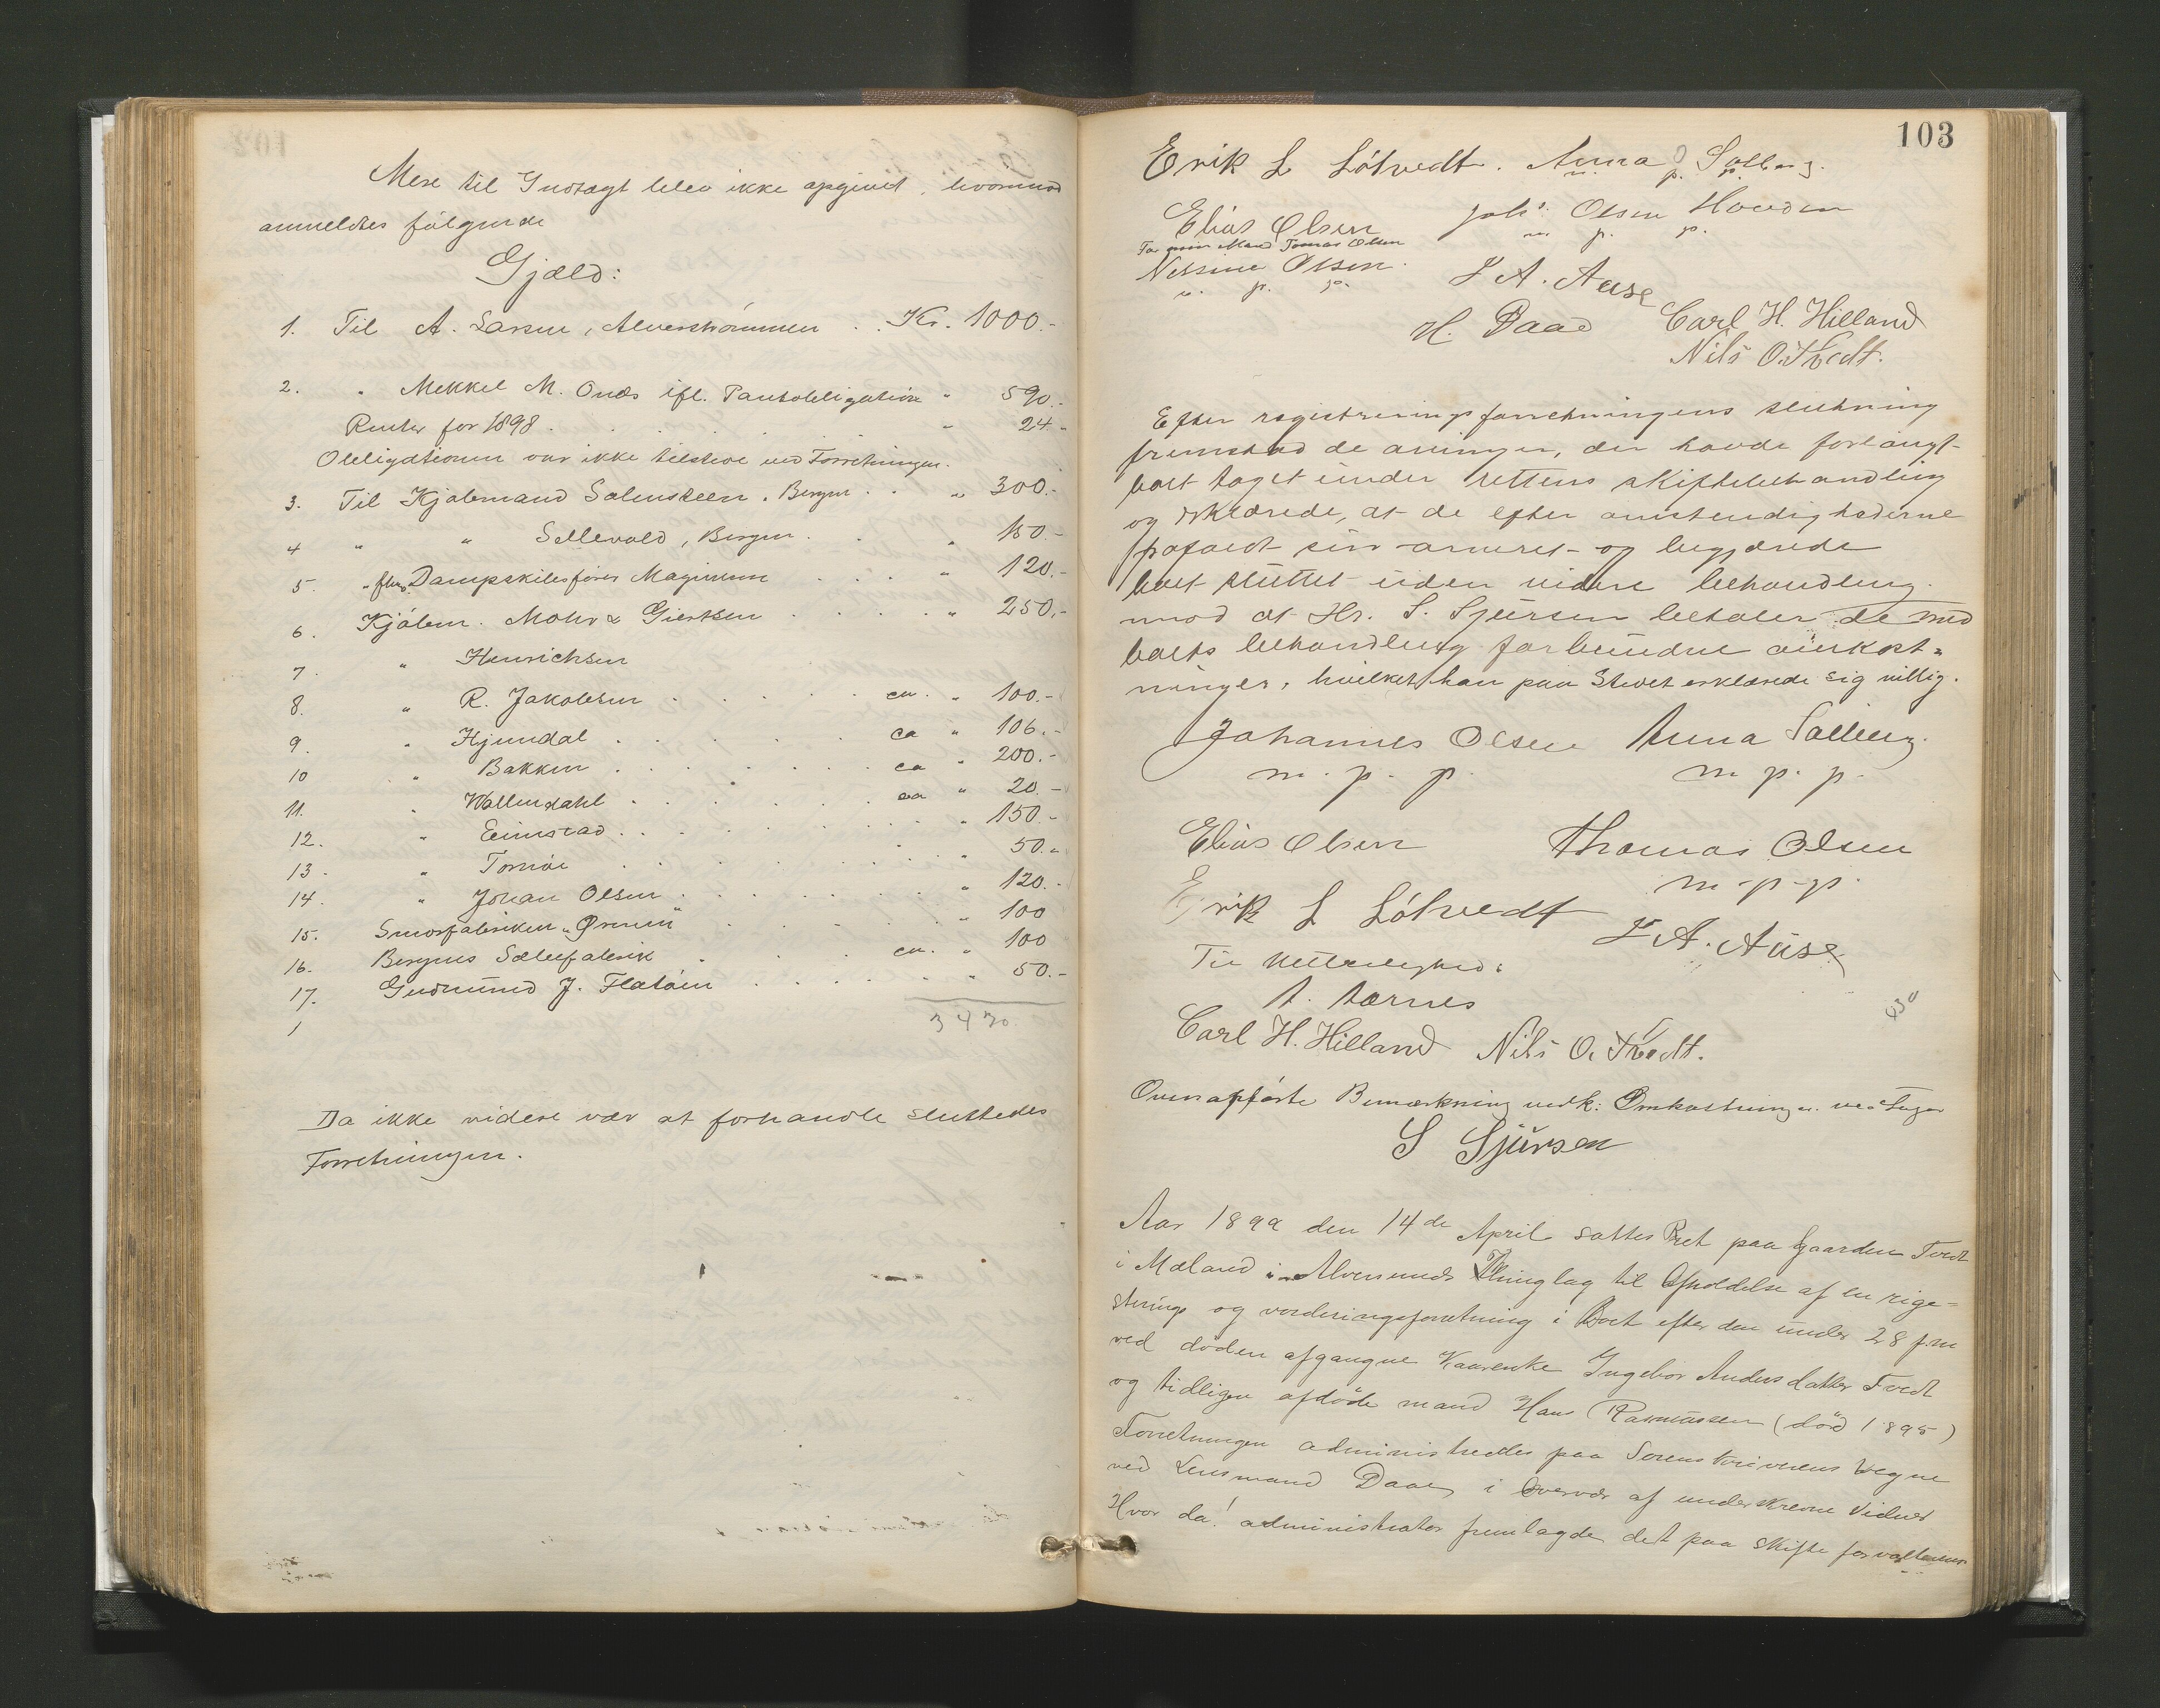 Mere til Indtægt blev ikke opgivet, hvorimod
anmeldtes følgende
Gjæld:
1. Til A. Larsen, Alverstrømmen . . Kr. 1000.-
2. " Mekkel M. Onds ifl. Pantobligation " 590.-
Renter for 1898 . . . . " 24 "
Obligationen var ikke tilstede ved Forretningen.
3. Til Kjøbmand Salensteen, Bergen . . " 300.-
4 " " Sellevold, Bergen . . " 150.-
5. " Dampskibsfører Magnusen . . . " 120.-
6. Kjøbm. Mohr & Giertsen . . . . " 250.-
7. " Henrichsen
8. " R. Jakobsen . . . . ca. " 100.-
9. " Hjundal . . . . . ca " 106.-
10 " Bakken . . . . . . ca " 200.-
11. " Wallendahl . . . . . ca " 20.-
12. " Eimstad . . . . . . . " 150.-
13. " Tornøe . . . . . . . " 50.-
14. " Johan Olsen . . . . . . " 120.-
15. Smørfabriken "Ørnen" . . . . " 100
16. Bergens Sæbefabrik . . . ca. " 100
17. Gudmund J. Flatøen . . . . . " 50.-
1
3430.
Da ikke videre var at forhandle sluttedes
Forretningen.
103
Erik L Løtvedt. Anna O Solberg.
m. p. p.
Elias Olsen Joh's Olsen Hovden
m. p. p.
For min Mand Tomas Olsen
Nessine Olsen.
m. p. p.
L A. Aase
H. Daae Carl H. Hilland
Nils O. Tvedt.
Efter registreringsforretningens slutning
fremstod de arvinger, der havde forlangt
boet taget under rettens skiftebehandling
og erklærede, at de efter omstendighederne
frafaldt sin arveret og begjærede
boet sluttet uden videre behandling
mod at Hr. S. Sjursen betaler de med
boets behandling forbundne omkost-
ninger, hvilket han paa Stedet erklærede sig villig.
Johannes Olsen Anna Solberg.
m. p. p. m. p. p.
Elias Olsen Thomas Olsen
m. p. p.
Erik L Løtvedt L A. Aase
Til Vitterlighed:
A. Aarnes
Carl H. Hilland Nils O. Tvedt.
Ovenanførte Bemærkning vedk: Omkostninger vedtager
S Sjursen
Aar 1899 den 14de April sattes Ret paa Gaarden Tvedt
i Mæland i Alversunds Thinglag til Afholdelse af en rigi-
strings og vurderingsforretning i Boet efter den under 28 f.m
ved døden afgangne Kaarenke Ingebor Andersdatter Tvedt
og tidligere afdøde mand Hans Rasmussen (død 1895)
Forretningen administredes paa Sorenskriverens Vegne
ved Lensmand Daae i Overvær af underskrevne Vidner
Hvor da! administrator fremlagde det paa Skifteforvalterens